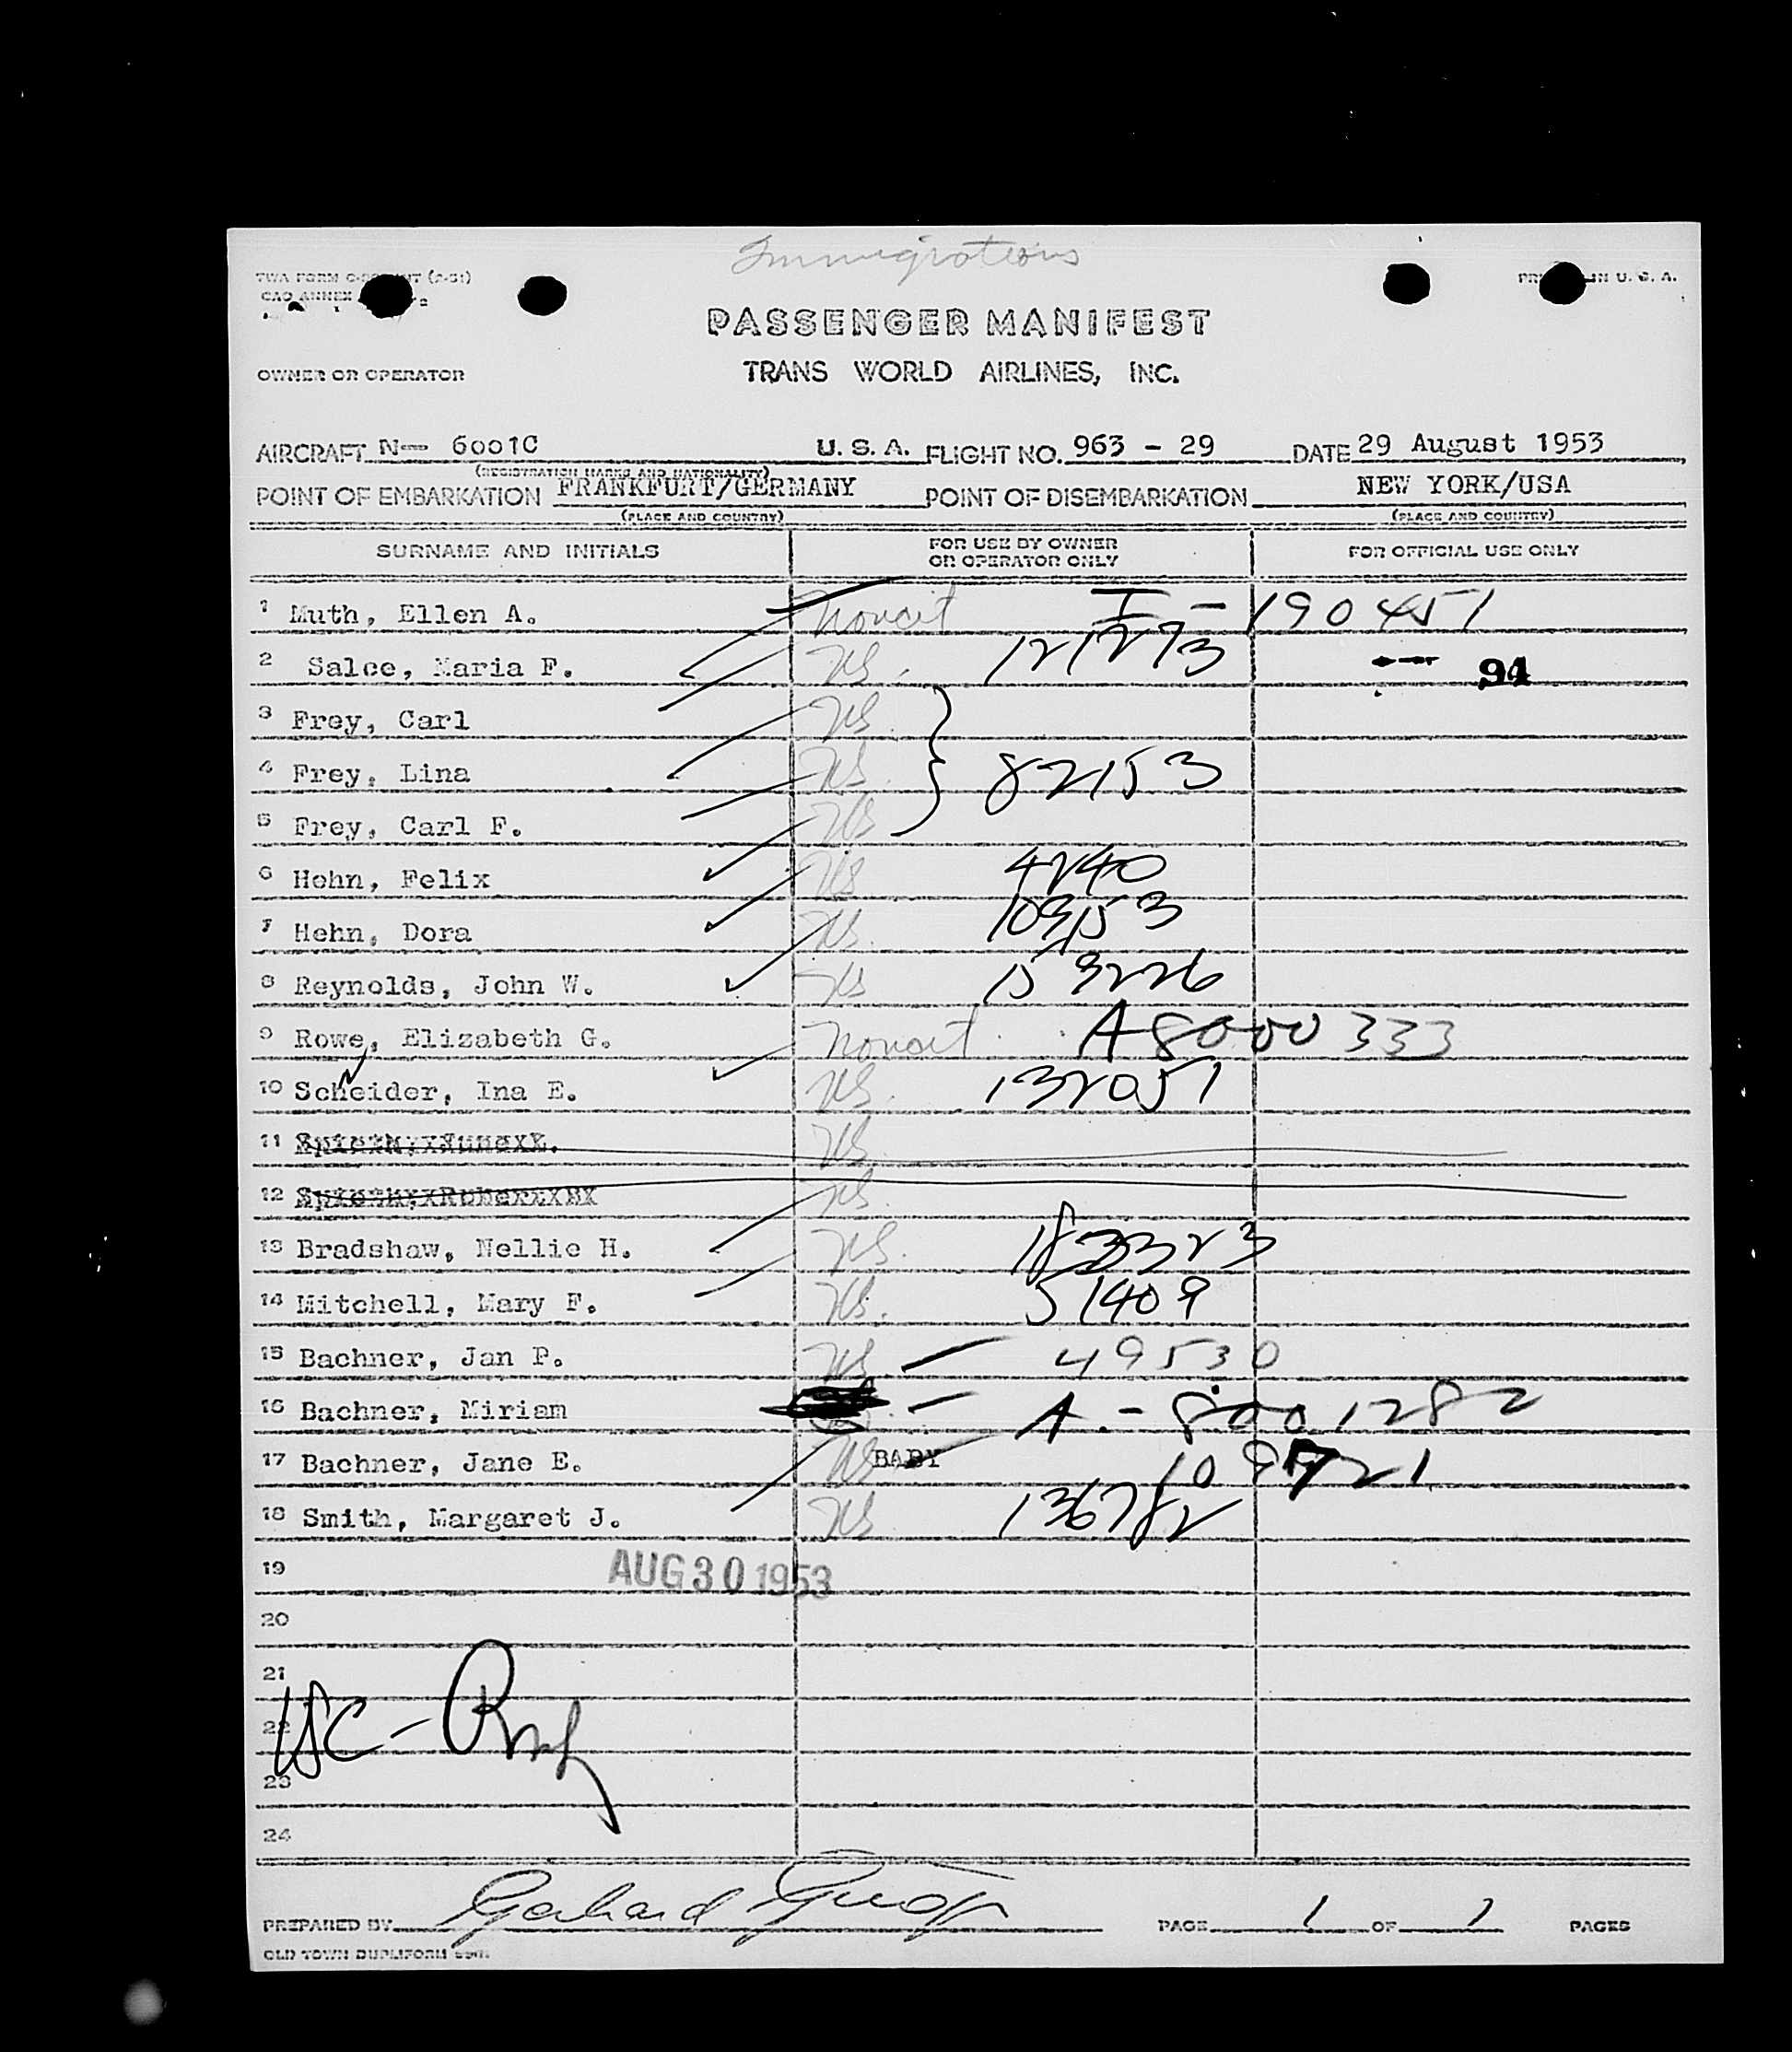 Immigrations
PRINTED IN U. S. A.
PASSENGER MANIFEST
OWNER OR OPERATOR
TRANS WORLD AIRLINES, INC.
AIRCRAFT N- 6001C U. S. A. FLIGHT NO. 963 - 29 DATE 29 August 1953
(REGISTRATION MARKS AND NATIONALITY)
POINT OF EMBARKATION FRANKFURT/GERMANY POINT OF DISEMBARKATION NEW YORK/USA
(PLACE AND COUNTRY) (PLACE AND COUNTRY)
SURNAME AND INITIALS FOR USE BY OWNER OR OPERATOR ONLY FOR OFFICIAL USE ONLY
1 Muth, Ellen A. Noncit I - 190451
2 Salce, Maria F. US. 121273 94
3 Frey, Carl US.
4 Frey, Lina US. 82153
5 Frey, Carl F. US
6 Hehn, Felix US. 4240
7 Hehn, Dora US. 103153
8 Reynolds, John W. US 159226
9 Rowe, Elizabeth G. Noncit. A 8000333
10 Scheider, Ina E. US. 132051
11 US.
12 US.
13 Bradshaw, Nellie H. US. 183323
14 Mitchell, Mary F. US. 51409
15 Bachner, Jan P. US. 49530
16 Bachner, Miriam A. - 8001282
17 Bachner, Jane E. US BABY 109721
18 Smith, Margaret J. US. 136782
19 AUG 30 1953
20
21
22 USC -
23
24
PREPARED BY Gerhard PAGE 1 OF 1 PAGES
OLD TOWN DUPLIFORM